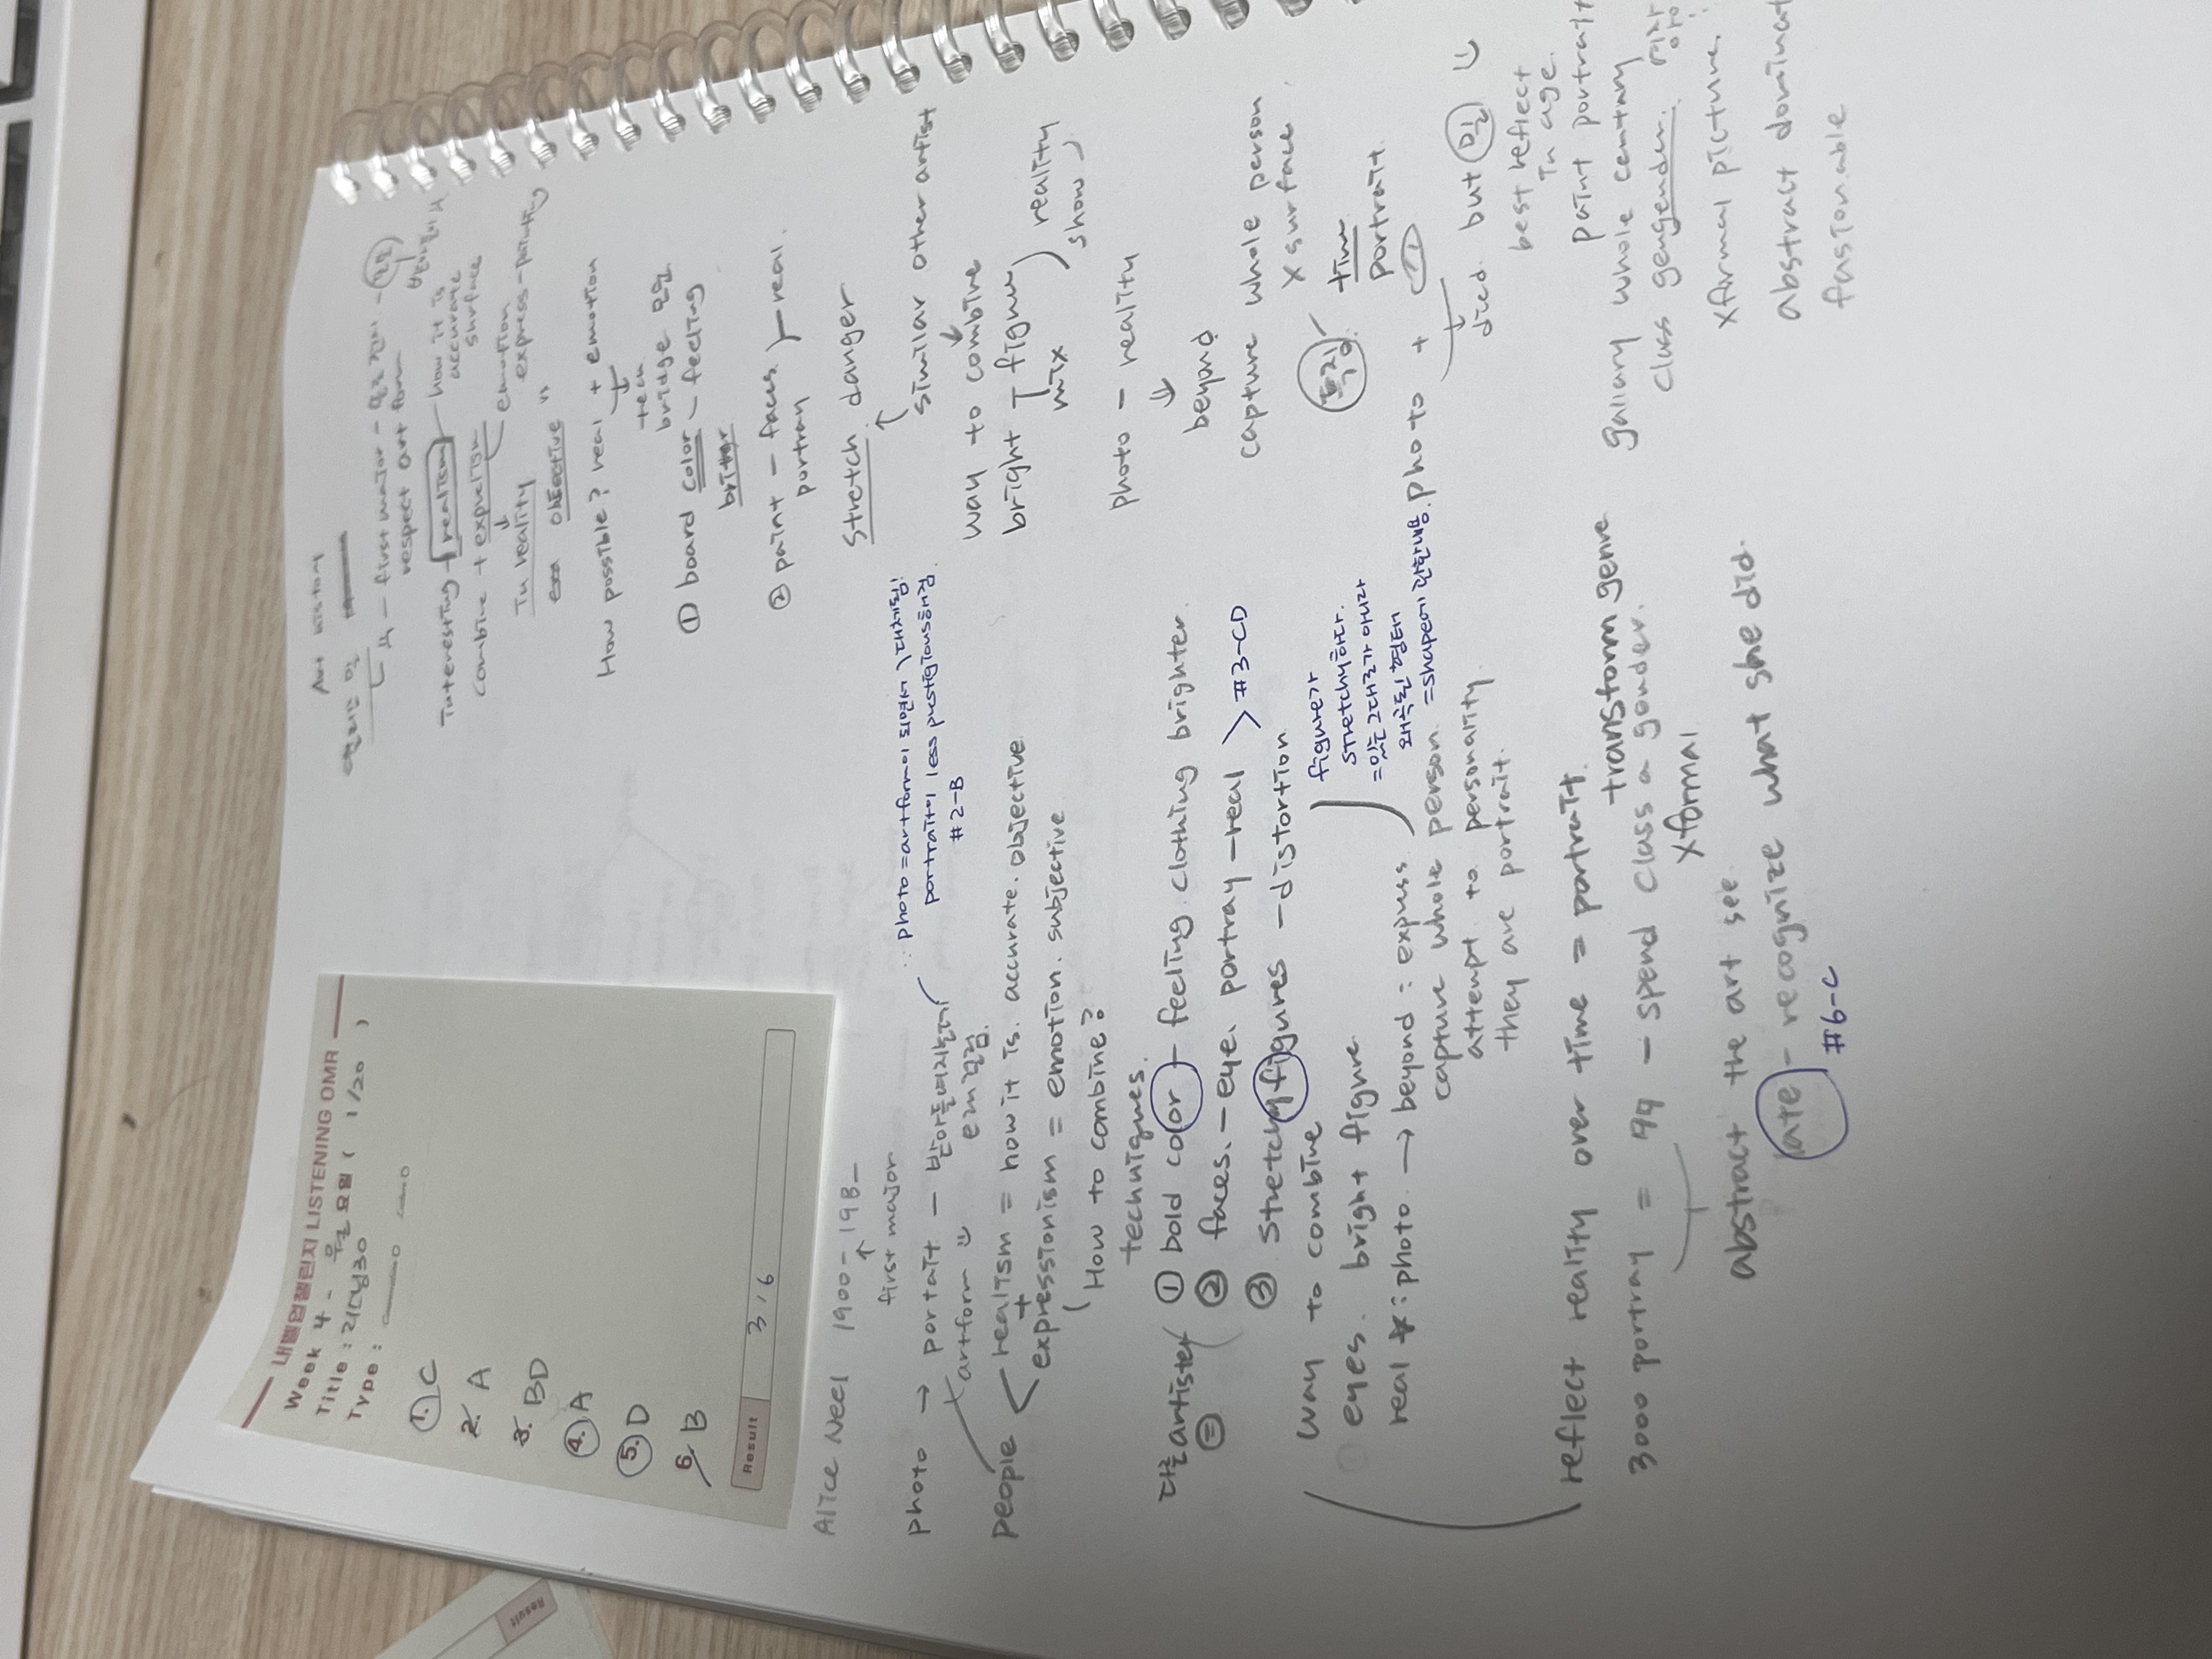 내맘영챌린지 LISTENING OMR
Week 4 - 월 요일 ( 1/20 )
Title : 리스닝30
Type :
1. C
2. A
3. BD
4. A
5. D
6. B
Result 3 / 6
Alice Neel 1900-198_
first major
photo → portait -
artform
people realism = how it is. accurate. objective
+
expressionism = emotion. subjective
(How to combine?
techniques.
∴ photo = art form이 되면서
portrait이 less prestigious해짐
#2-B
다른 artister
① bold color - feeling. clothing brighter.
② faces. - eye. portray - real
#3-CD
③ stretchy figures - distortion
figure가
stretchy하다.
= 있는 그대로가 아니라
왜곡된 형태
= shape에 관한 내용.
way to combine
eyes. bright figure
real : photo. → beyond : express
capture whole person.
attempt to personality.
they are portrait.
reflect reality over time = portrait.
3000 portray = 44 - spend class a gender.
transtorm genre
x formal
abstract the art see
late - recognize what she did.
#6-C
Art history
first major
respect art form
Interesting + realism - how it is
accurate
surface
combine + - emotion
In reality express-painting
objective
How possible? real + emotion
tech
bridge
① board color - feeling
briter
② paint - faces
portray
real.
stretch danger
similar other artist
way to combine
bright figure
mix
reality
show
photo - reality
beyond
capture whole person
x surface
특징
time
portrait.
photo +
died. but
best reflect
in age.
paint portrait
gallary whole century
class gengender.
x formal picture
abstract dominat
fastionable